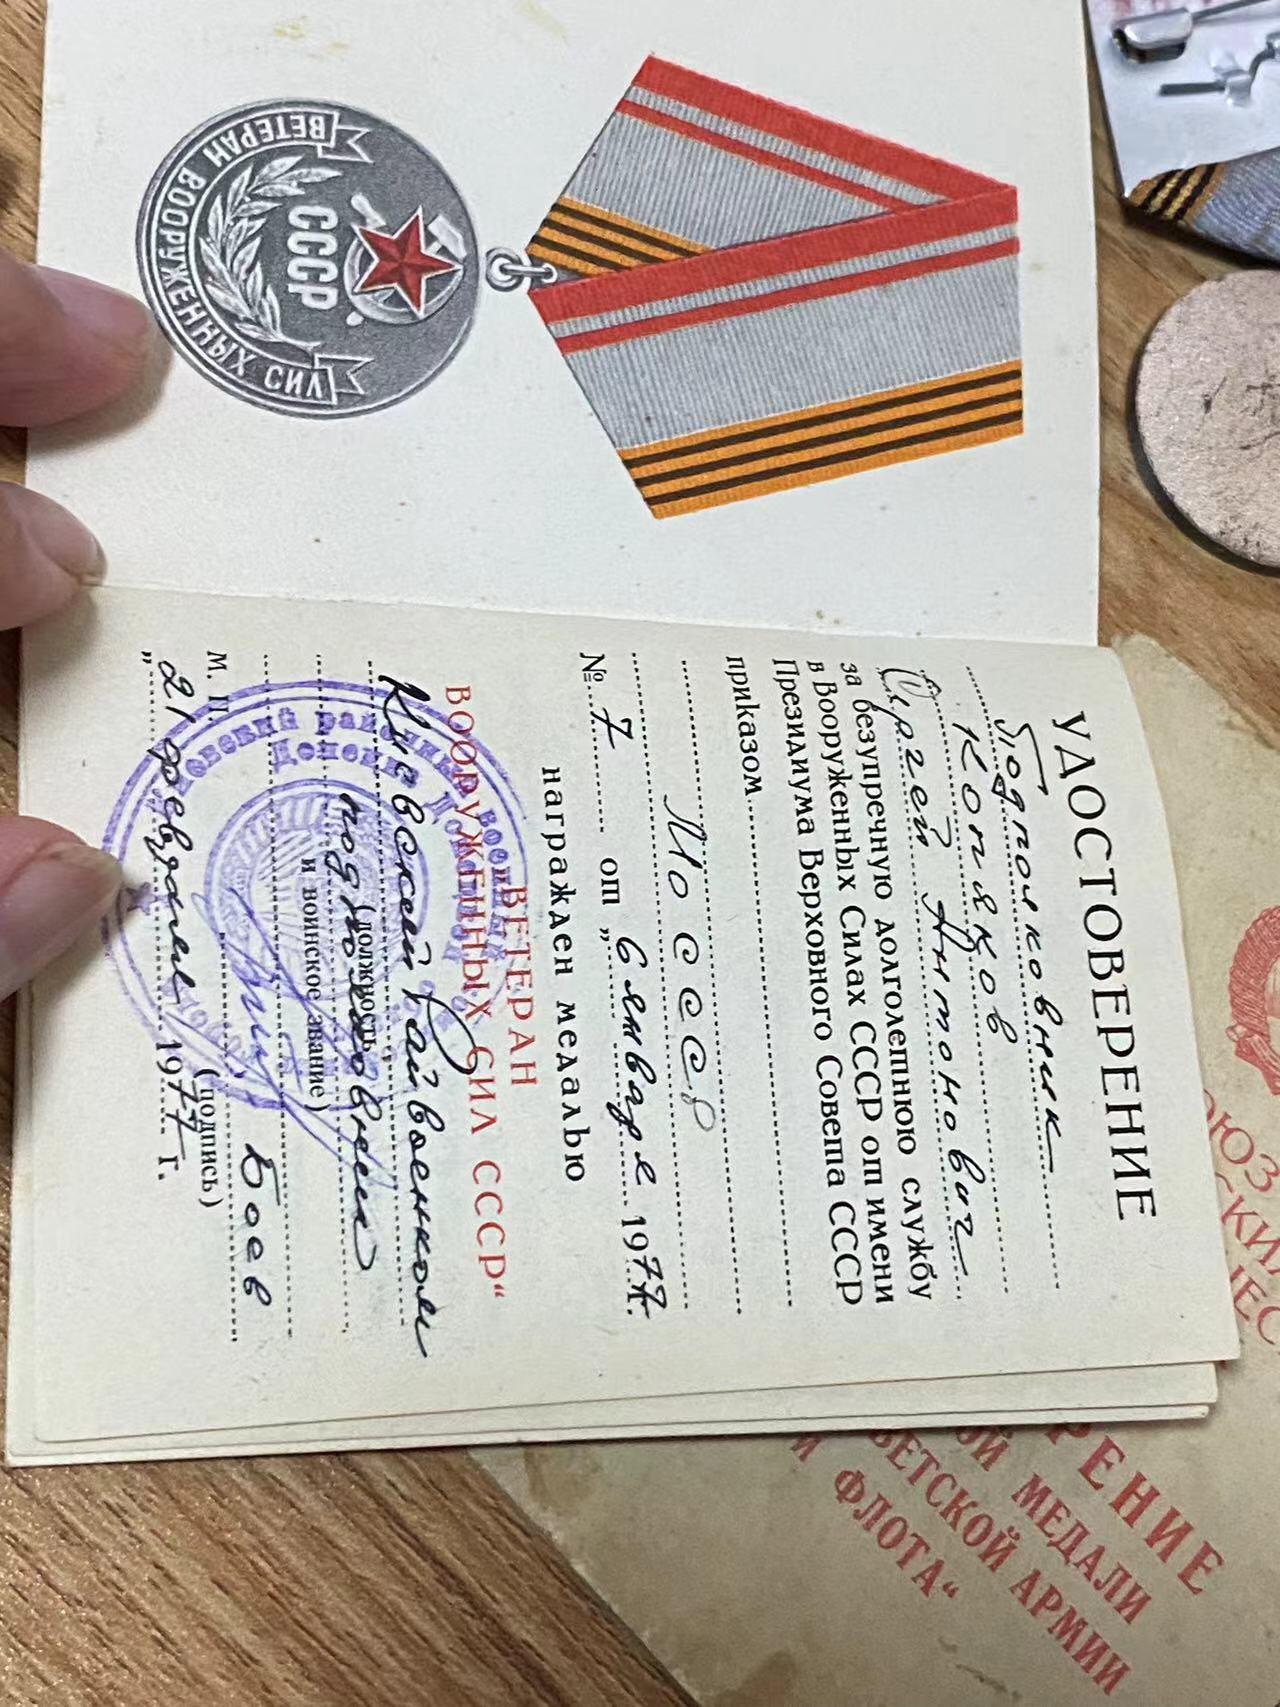 ВЕТЕРАН ВООРУЖЕННЫХ СИЛ
СССР
УДОСТОВЕРЕНИЕ
Подполковник
Копяков
Сергей Антонович
за безупречную долголетнюю службу
в Вооруженных Силах СССР от имени
Президиума Верховного Совета СССР
приказом
МО СССР
№ 7 от „ 6 января 1977 г.
награжден медалью
„ВЕТЕРАН
ВООРУЖЕННЫХ СИЛ СССР“
Киевский Райвоенком
(должность
подполковник
и воинское звание)
Боев
М. П.
(подпись)
„21 февраля 1977 г.
РЕНИЕ
ОЙ МЕДАЛИ
ВЕТСКОЙ АРМИИ
И ФЛОТА“